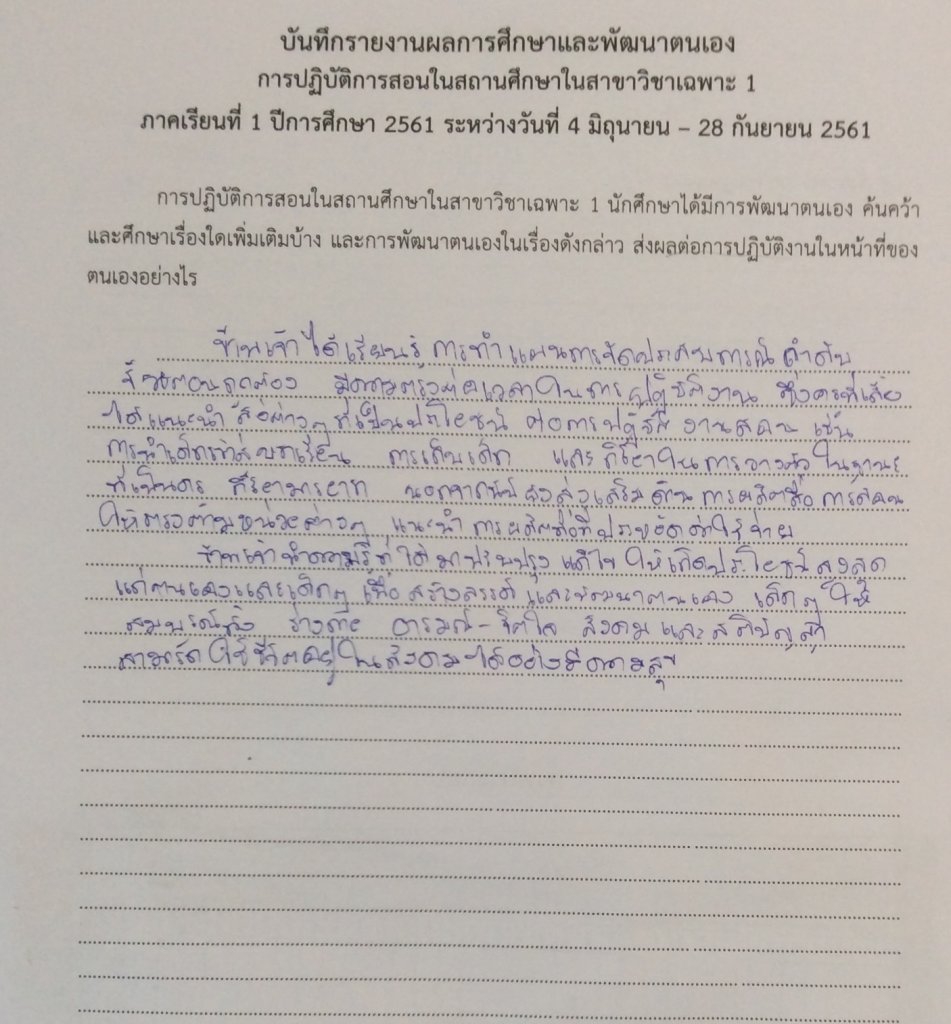 บันทึกรายงานผลการศึกษาและพัฒนาตนเอง
การปฏิบัติการสอนในสถานศึกษาในสาขาวิชาเฉพาะ 1
ภาคเรียนที่ 1 ปีการศึกษา 2561 ระหว่างวันที่ 4 มิถุนายน – 28 กันยายน 2561
การปฏิบัติการสอนในสถานศึกษาในสาขาวิชาเฉพาะ 1 นักศึกษาได้มีการพัฒนาตนเอง ค้นคว้า
และศึกษาเรื่องใดเพิ่มเติมบ้าง และการพัฒนาตนเองในเรื่องดังกล่าว ส่งผลต่อการปฏิบัติงานในหน้าที่ของ
ตนเองอย่างไร
ข้าพเจ้าได้เรียนรู้ การทำแผนการจัดประสบการณ์ ลำดับ
ขั้นตอนถูกต้อง มีความตรงต่อเวลาในการปฏิบัติงาน ทั้งครูพี่เลี้ยง
ได้แนะนำสื่อต่างๆ ที่เป็นประโยชน์ ต่อการปฏิบัติงานสอน เช่น
การนำเด็กเข้าสู่บทเรียน การเก็บเด็ก และกิริยาในการวางตัวในฐานะ
ที่เป็นครู กิริยามารยาท นอกจากนี้ยังส่งเสริมด้านการผลิตสื่อการสอน
ให้ตรงตามหน่วยต่างๆ แนะนำการผลิตสื่อที่ประหยัดค่าใช้จ่าย
ข้าพเจ้านำความรู้ที่ได้มาปรับปรุง แก้ไข ให้เกิดประโยชน์สูงสุด
แก่ตนเองและเด็กๆ เพื่อสร้างสรรค์ และพัฒนาตนเอง เด็กๆ ให้
สมบูรณ์ทั้ง ร่างกาย อารมณ์-จิตใจ สังคมและสติปัญญา
สามารถใช้ชีวิตอยู่ในสังคมได้อย่างมีความสุข